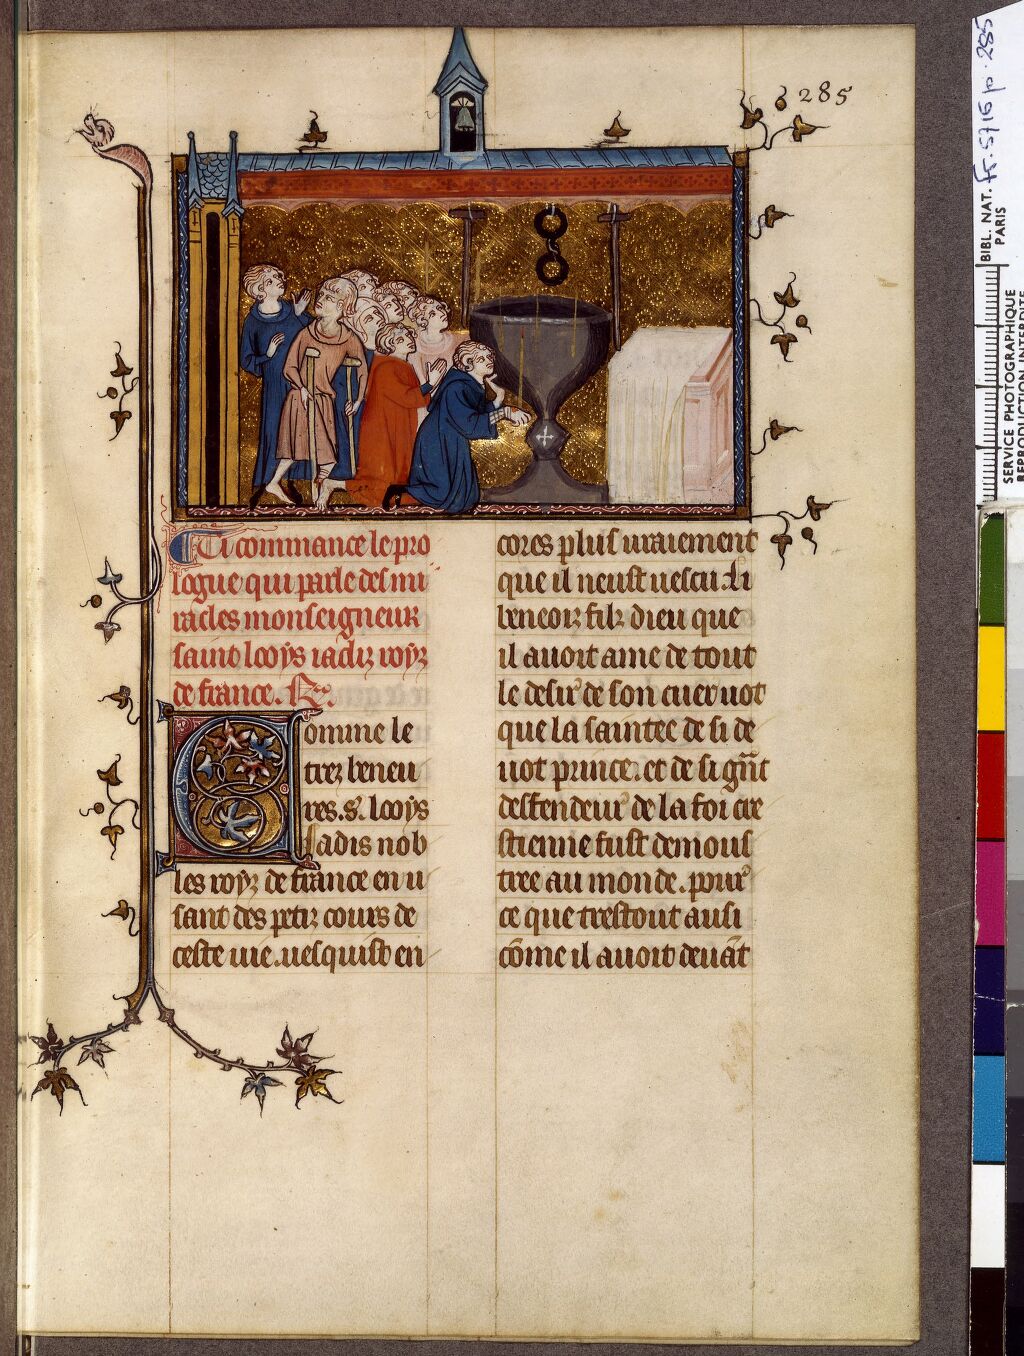 285
Ci commance le pro
logue qui parle des mi
racles monseigneur
saint looys iadiz royz
de france. Rx.
Comme le
trez beneu
res .s. looys
Iadis nob
les royz de france en u
sant des petiz cours de
ceste uie. uesquist en
cores plus uraiement
que il neust uescu. Li
beneoiz filz dieu que
il auoit ame de tout
le desir de son cuer uot
que la saintee de si de
uot prince. et de si gñt
deffendeur de la foi cre
stienne fust demous
tree au monde. pour
ce que trestout ausi
cõme il auoit deuãt
fr. 5716 p. 285
BIBL. NAT.
PARIS
SERVICE PHOTOGRAPHIQUE
REPRODUCTION INTERDITE